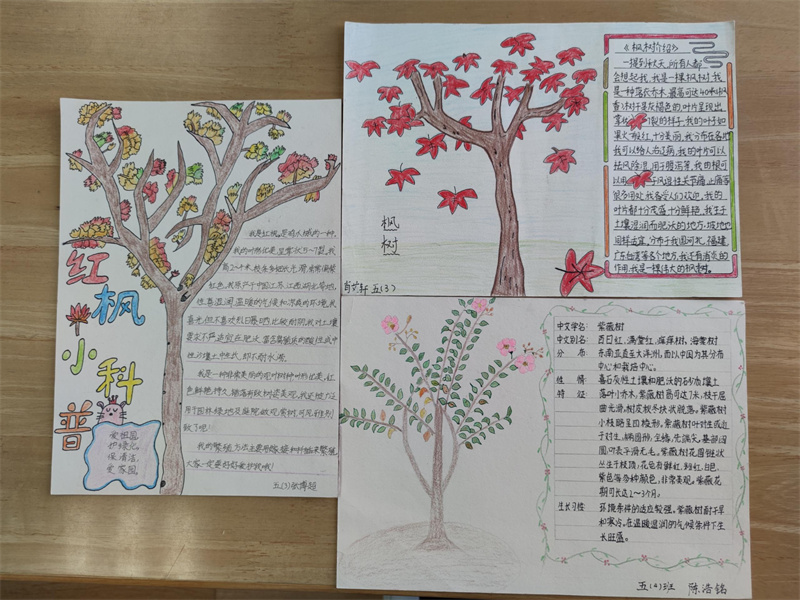 红枫
小科
普
爱祖国,
护绿化。
保清洁,
爱家园。
我是红枫,是槭木槭的一种,
我的叶形优美,呈掌状5~7裂,我
高2~4米,枝条多细长光滑,常常偏紫
红色,我原产于中国江苏、江西湖北等地,
性喜湿润、温暖的气候和凉爽的环境,我
喜光,但不喜欢烈日曝晒,比较耐阴,我对土壤
要求不严适宜在肥沃、富含腐殖质的酸性或中
性沙壤土中生长,却不耐水涝。
我是一种非常美丽的观叶树种,叶形优美,红
色鲜艳持久,错落有致,树姿美观,我还被广泛
用于园林绿地及庭院做观赏树,可见活性别
致了吧!
我的繁殖方法主要用嫁接和扦插来繁殖
大家一定要好好爱护我哦!
五(3)张博超
枫
树
五(3)
《枫树介绍》
一提到秋天,所有人都
会想起我,我是一棵枫树,我
是一种落乔木,最高可达40米,枫
树子是灰褐色的,叶片呈现出
掌状 裂的样子,我的叶子如
果火一般红,十分美丽,我分布在各地
我可以给人右辽病,我的叶片可以
祛风除湿,用于腰泻等,我的根可
以用 于风湿性关节痛,止痛等
很多用处,我备受人们欢迎,我的
叶片都十分茂盛十分鲜艳,我生于
土壤湿润而肥沃的地方,坡地也
同样适宜,分布于我国河北,福建,
广东台湾等各个地方,我还有消炎的
作用,我是一棵伟大的枫树。
中文学名:紫薇树
中文别名 百日红,满堂红,痒痒树,海棠树
分布 东南亚直至大洋洲,而以中国为其分布
中心和栽培中心。
性情 喜石灰性土壤和肥沃的砂质壤土
特征 落叶小乔木,紫薇树高可达7米,枝干屈
曲光滑,树皮秋冬块状脱落。紫薇树
小枝略呈四棱形,紫薇树叶对生或近
于对生,椭圆形,全缘,先端尖,基部阔
圆,叩表平滑无毛。紫薇树花圆锥状
丛生于枝顶,花龟有鲜红,粉红,白色,
紫色等各种颜色,非常美观。紫薇花
期可长达2~3个月。
生长习性 环境条件的适应较强。紫薇树耐干旱
和寒冷。在温暖湿润的气候条件下生
长旺盛。
五(2)班 陈浩铭